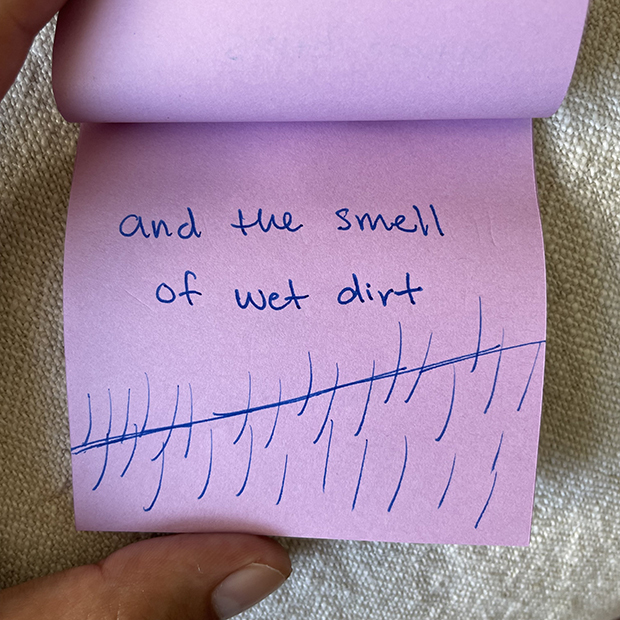 and the smell
of wet dirt